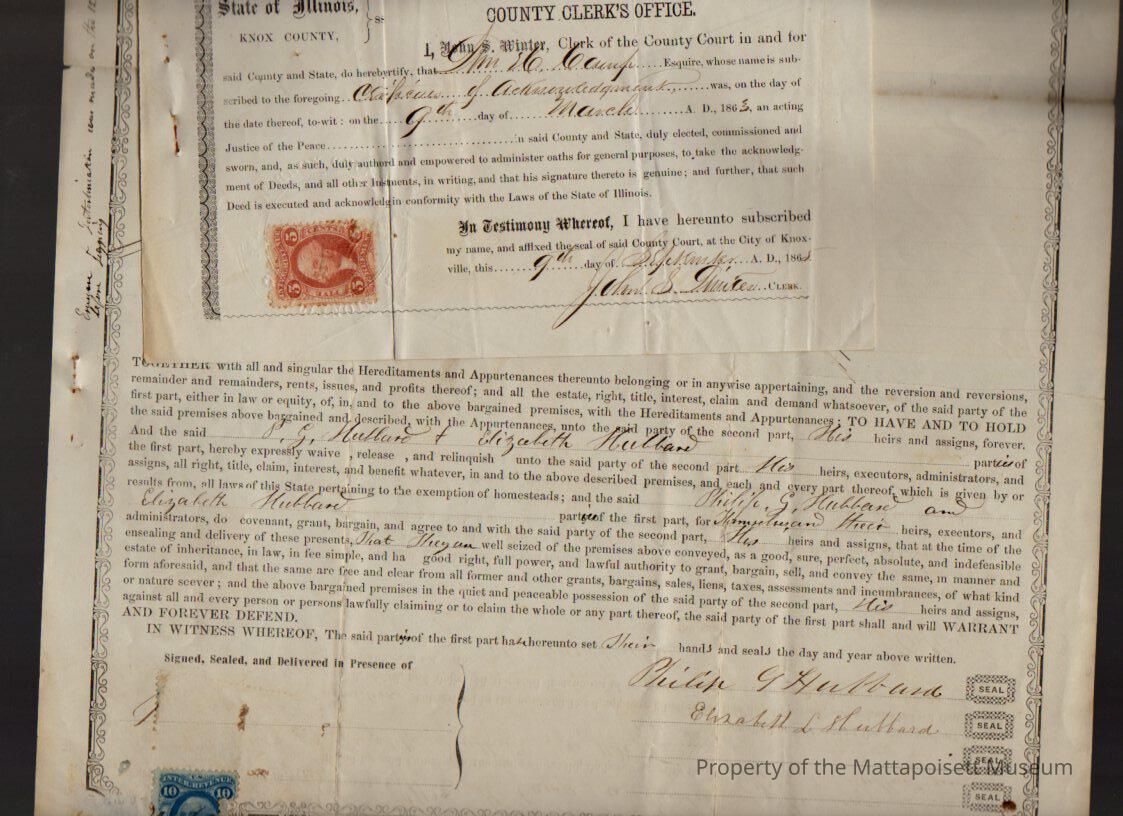 State of Illinois,
KNOX COUNTY,
ss
COUNTY CLERK'S OFFICE.
I, John S. Winter, Clerk of the County Court in and for
said County and State, do hereby tify, that Wm H. Esquire, whose name is sub-
scribed to the foregoing of Acknowledgment was, on the day of
the date thereof, to-wit: on the 9th day of March A. D., 1863, an acting
Justice of the Peace in said County and State, duly elected, commissioned and
sworn, and, as such, duly authord and empowered to administer oaths for general purposes, to take the acknowledg-
ment of Deeds, and all other Instments, in writing, and that his signature thereto is genuine; and further, that such
Deed is executed and acknowledg in conformity with the Laws of the State of Illinois.
In Testimony Whereof, I have hereunto subscribed
my name, and affixed the seal of said County Court, at the City of Knox-
ville, this 9th day of A. D., 186
John S. Winter CLERK.
5 CENTS 5
before signing
was made on the
TOGETHER with all and singular the Hereditaments and Appurtenances thereunto belonging or in anywise appertaining, and the reversion and reversions,
remainder and remainders, rents, issues, and profits thereof; and all the estate, right, title, interest, claim and demand whatsoever, of the said party of the
first part, either in law or equity, of, in, and to the above bargained premises, with the Hereditaments and Appurtenances: TO HAVE AND TO HOLD
the said premises above bargained and described, with the Appurtenances, unto the said party of the second part, His heirs and assigns, forever.
And the said P. G. Hubbard & Elizabeth Hubbard parties of
the first part, hereby expressly waive , release , and relinquish unto the said party of the second part His heirs, executors, administrators, and
assigns, all right, title, claim, interest, and benefit whatever, in and to the above described premises, and each and every part thereof, which is given by or
results from, all laws of this State pertaining to the exemption of homesteads; and the said Philip G. Hubbard and
Elizabeth Hubbard parties of the first part, for Themselves and Their heirs, executors, and
administrators, do covenant, grant, bargain, and agree to and with the said party of the second part, His heirs and assigns, that at the time of the
ensealing and delivery of these presents, That They are well seized of the premises above conveyed, as a good, sure, perfect, absolute, and indefeasible
estate of inheritance, in law, in fee simple, and ha good right, full power, and lawful authority to grant, bargain, sell, and convey the same, in manner and
form aforesaid, and that the same are free and clear from all former and other grants, bargains, sales, liens, taxes, assessments and incumbrances, of what kind
or nature soever; and the above bargained premises in the quiet and peaceable possession of the said party of the second part, His heirs and assigns,
against all and every person or persons lawfully claiming or to claim the whole or any part thereof, the said party of the first part shall and will WARRANT
AND FOREVER DEFEND.
IN WITNESS WHEREOF, The said parties of the first part have hereunto set Their hands and seals the day and year above written.
Signed, Sealed, and Delivered in Presence of
Philip G Hubbard SEAL
Elizabeth L Hubbard SEAL
SEAL
SEAL
INTER. REVENUE
10 10
Property of the Mattapoisett Museum